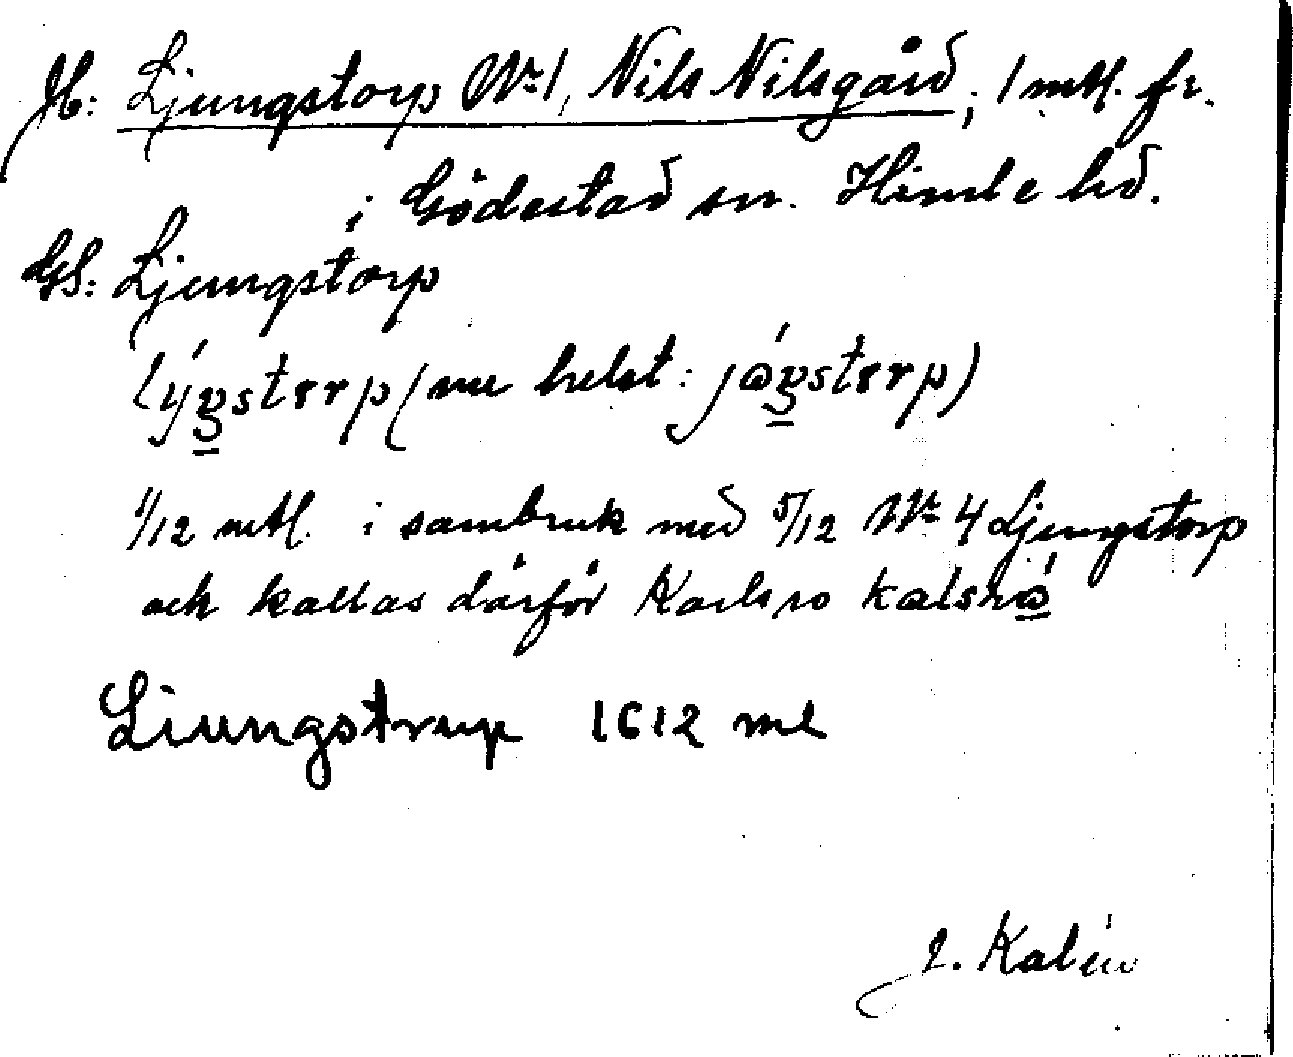 Jb: Ljungstorp Nr 1, Nils Nilsgård; 1 mtl. fr.
i Gödestad sn. Himle hd.
GS: Ljungstorp
(nu helst:
1/12 mtl. i sambruk med 5/12 Nr 4 Ljungstorp
och kallas därför Karlsro
Liungstrup 1612 ml
J. Kalén